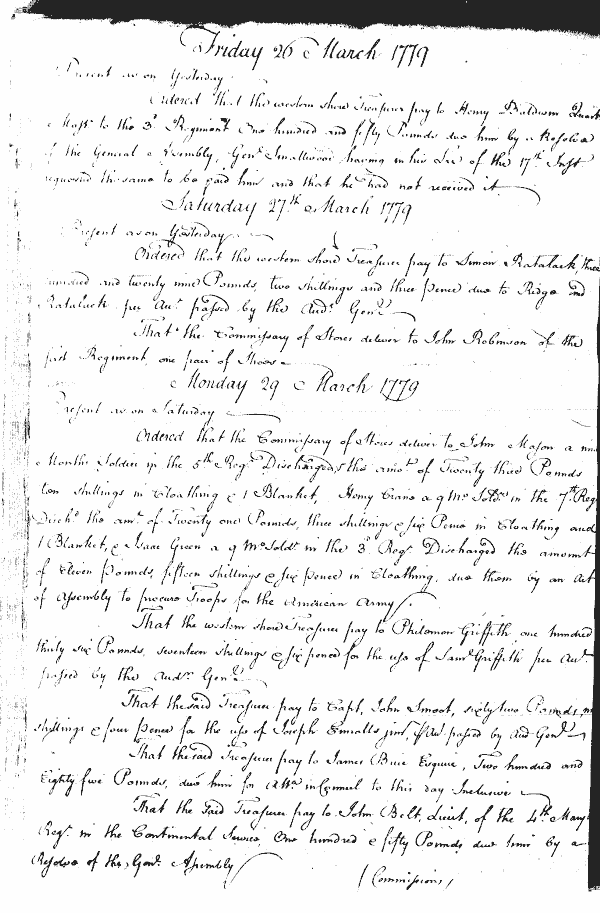 Friday 26 March 1779
Present as on Yesterday
Ordered that the western shore Treasurer pay to Henry Baldwin Quart
Mastr to the 3d Regiment One hundred and fifty Pounds due him by a Resolve
of the General Assembly, Genl Smallwood having in his Lre of the 17th Inst
requested the same to be paid him and that he had not received it
Saturday 27th March 1779
Present as on Yesterday
Ordered that the western shore Treasurer pay to Simon Rataluck, three
hundred and twenty nine Pounds, two shillings and three Pence due to Ridge and
Rataluck per Acct passed by the Audr Genl
That the Commissary of Stores deliver to John Robinson of the
first Regiment, one pair of Shoes
Monday 29 March 1779
Present as on Saturday
Ordered that the Commissary of Stores deliver to John Mason a nine
Months Soldier in the 5th Regt Discharged, the amot of Twenty three Pounds
ten shillings in Cloathing & 1 Blanket, Henry Crano a 9 Mo Soldr in the 7th Reg
Dischd the amt of Twenty one Pounds, three shillings & six Pence in Cloathing and
1 Blanket, & Isaac Green a 9 Mo Soldr in the 3 Regt Discharged the amount
of Eleven Pounds, fifteen shillings & six pence in Cloathing, due them by an Act
of Assembly to procure Troops for the American Army.
That the western shore Treasurer pay to Philemon Griffith one hundred
thirty six Pounds, seventeen shillings & six pence for the use of Saml Griffith per Acct
passed by the Audr Genl
That the said Treasurer pay to Capt. John Smoot, sixty two Pounds,
shillings & four Pence for the use of Joseph Ennalls junr, passed by Aud Genl
That the said Treasurer pay to James Brice Esquire, Two hundred and
Eighty five Pounds, due him for Atte in Council to this day Inclusive
That the said Treasurer pay to John Belt, Lieut. of the 4th Mary
Regt in the Continental Service, One hundred & fifty Pounds due him by a
Resolve of the Genl Assembly
(Commissions)